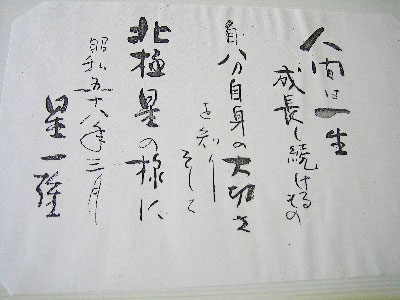 人間は一生
成長し続けるもの
自分自身の大切さ
を知り そして
北極星の様に
昭和五十八年三月
星一強